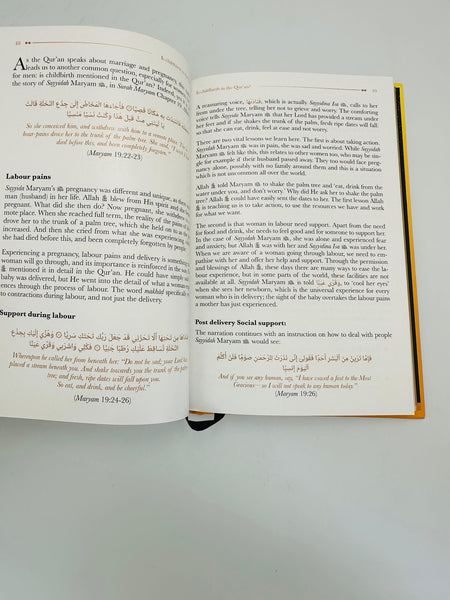 Is childbirth in
As the Qur'an speaks about marriage and pregnancy,
leads us to another common question, especially for
for men: is childbirth mentioned in the Qur'an? Indeed,
the story of Sayyidah Maryam in Surah Maryam Chapter
فَحَمَلَتْهُ فَانتَبَذَتْ بِهِ مَكَانًا قَصِيًّا ۞ فَأَجَاءَهَا الْمَخَاضُ إِلَىٰ جِذْعِ النَّخْلَةِ قَالَتْ
So she conceived him, and withdrew with him to a remote
been completely forgotten
(Maryam 19:22-23)
Labour pains
Sayyida Maryam's pregnancy was different and unique, as there
man [husband] in her life. Allah blew from His spirit and she
pregnant. What did she then do? Now pregnant, she withdrew
mote place. When she reached full term, the reality of the pains of
drove her to the trunk of a palm tree, which she held on to as
increased. And then she cried from what she was experiencing,
she had died before this, and been completely forgotten by people.
Experiencing a pregnancy, labour pains and delivery is something
woman will go through, and its importance is reinforced in the
mentioned it in detail in the Qur'an. He could have simply
baby was delivered, but He went into the detail of what a woman
ences through the process of labour. The word makhad specifically
to contractions during labour, and not just the delivery.
Support during labour
فَنَادَاهَا مِن تَحْتِهَا أَلَّا تَحْزَنِي قَدْ جَعَلَ رَبُّكِ تَحْتَكِ سَرِيًّا ۞ وَهُزِّي إِلَيْكِ بِجِذْعِ
النَّخْلَةِ تُسَاقِطْ عَلَيْكِ رُطَبًا جَنِيًّا ۞ فَكُلِي وَاشْرَبِي وَقَرِّي عَيْنًا
Whereupon he called her from beneath her: "Do not be sad; your Lord has
placed a stream beneath you. And shake towards you the trunk of the palm
tree; and fresh, ripe dates will fall upon you.
So eat, and drink, and be cheerful."
(Maryam 19:24-26)
Is childbirth in the Qur'an?
A reassuring voice, فَنَادَاهَا, which is actually Sayyidina Isa, calls to her
from under the tree, telling her not to grieve and worry. The comforting
voice tells Sayyidah Maryam that her Lord has provided a stream under
her feet and if she shakes the trunk of the palm, fresh ripe dates will fall,
so that she can eat, drink, feel at ease and not worry.
There are two vital lessons we learn here. The first is about taking action.
Sayyidah Maryam was in pain, she was sad and worried. While
Maryam felt like this, this relates to other women too, who may be sin-
gle for example if their husband passed away. They too would face preg-
nancy alone, possibly with no family around them and this is a situation
which is not uncommon all over the world.
Allah told Maryam to shake the palm tree and 'eat, drink from the
water under you, and don't worry'. Why did He ask her to shake the palm
tree? Allah could have easily sent the dates to her. The first lesson Allah
is teaching us is to take action, to use the resources we have and work
for what we want.
The second is that a woman in labour need support. Apart from the need
for food and drink, she needs to feel good and for someone to support her.
In the case of Sayyidah Maryam, she was alone and experienced fear
and anxiety; but Allah was with Maryam and Sayyidina Isa was under her.
When we are aware of a woman going through labour, we need to em-
pathise with her and offer her help and support. Through the permission
and blessings of Allah, these days there are many ways to ease the la-
bour experience, but in some parts of the world, these facilities are not
available at all. Sayyidah Maryam is told وَقَرِّي عَيْنًا, to 'cool her eyes'
when she sees her newborn, which is the universal experience for every
woman who is in delivery; the sight of the baby overtakes the labour pains
she has just experienced.
Post delivery Social support:
The narration continues with an instruction on how to deal with people
Sayyidah Maryam would see:
فَإِمَّا تَرَيِنَّ مِنَ الْبَشَرِ أَحَدًا فَقُولِي إِنِّي نَذَرْتُ لِلرَّحْمَٰنِ صَوْمًا فَلَنْ أُكَلِّمَ
الْيَوْمَ إِنسِيًّا
And if you see any human, say, "I have vowed a fast to the Most
Gracious—so I will not speak to any human today."
(Maryam 19:26)